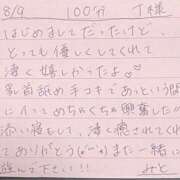 8/9 100分 T様
はじめましてだったけど、
とっても優しくしてくれて
凄く嬉しかったよ♡
乳首舐め手コキであっという間
にイってめちゃくちゃ興奮したか
添い寝もして、凄く癒されてく
てありがとう(*ˊᵕˋ*)また一緒に
遊んで下さい!!
みと